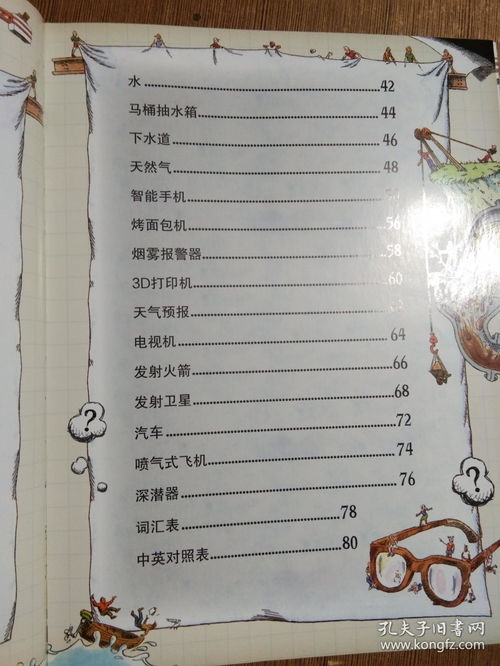 水 42
马桶抽水箱 44
下水道 46
天然气 48
智能手机
烤面包机 56
烟雾报警器 58
3D打印机 60
天气预报
电视机 64
发射火箭 66
发射卫星 68
汽车 72
喷气式飞机 74
深潜器 76
词汇表 78
中英对照表 80
?
?
孔夫子旧书网
www.kongfz.com